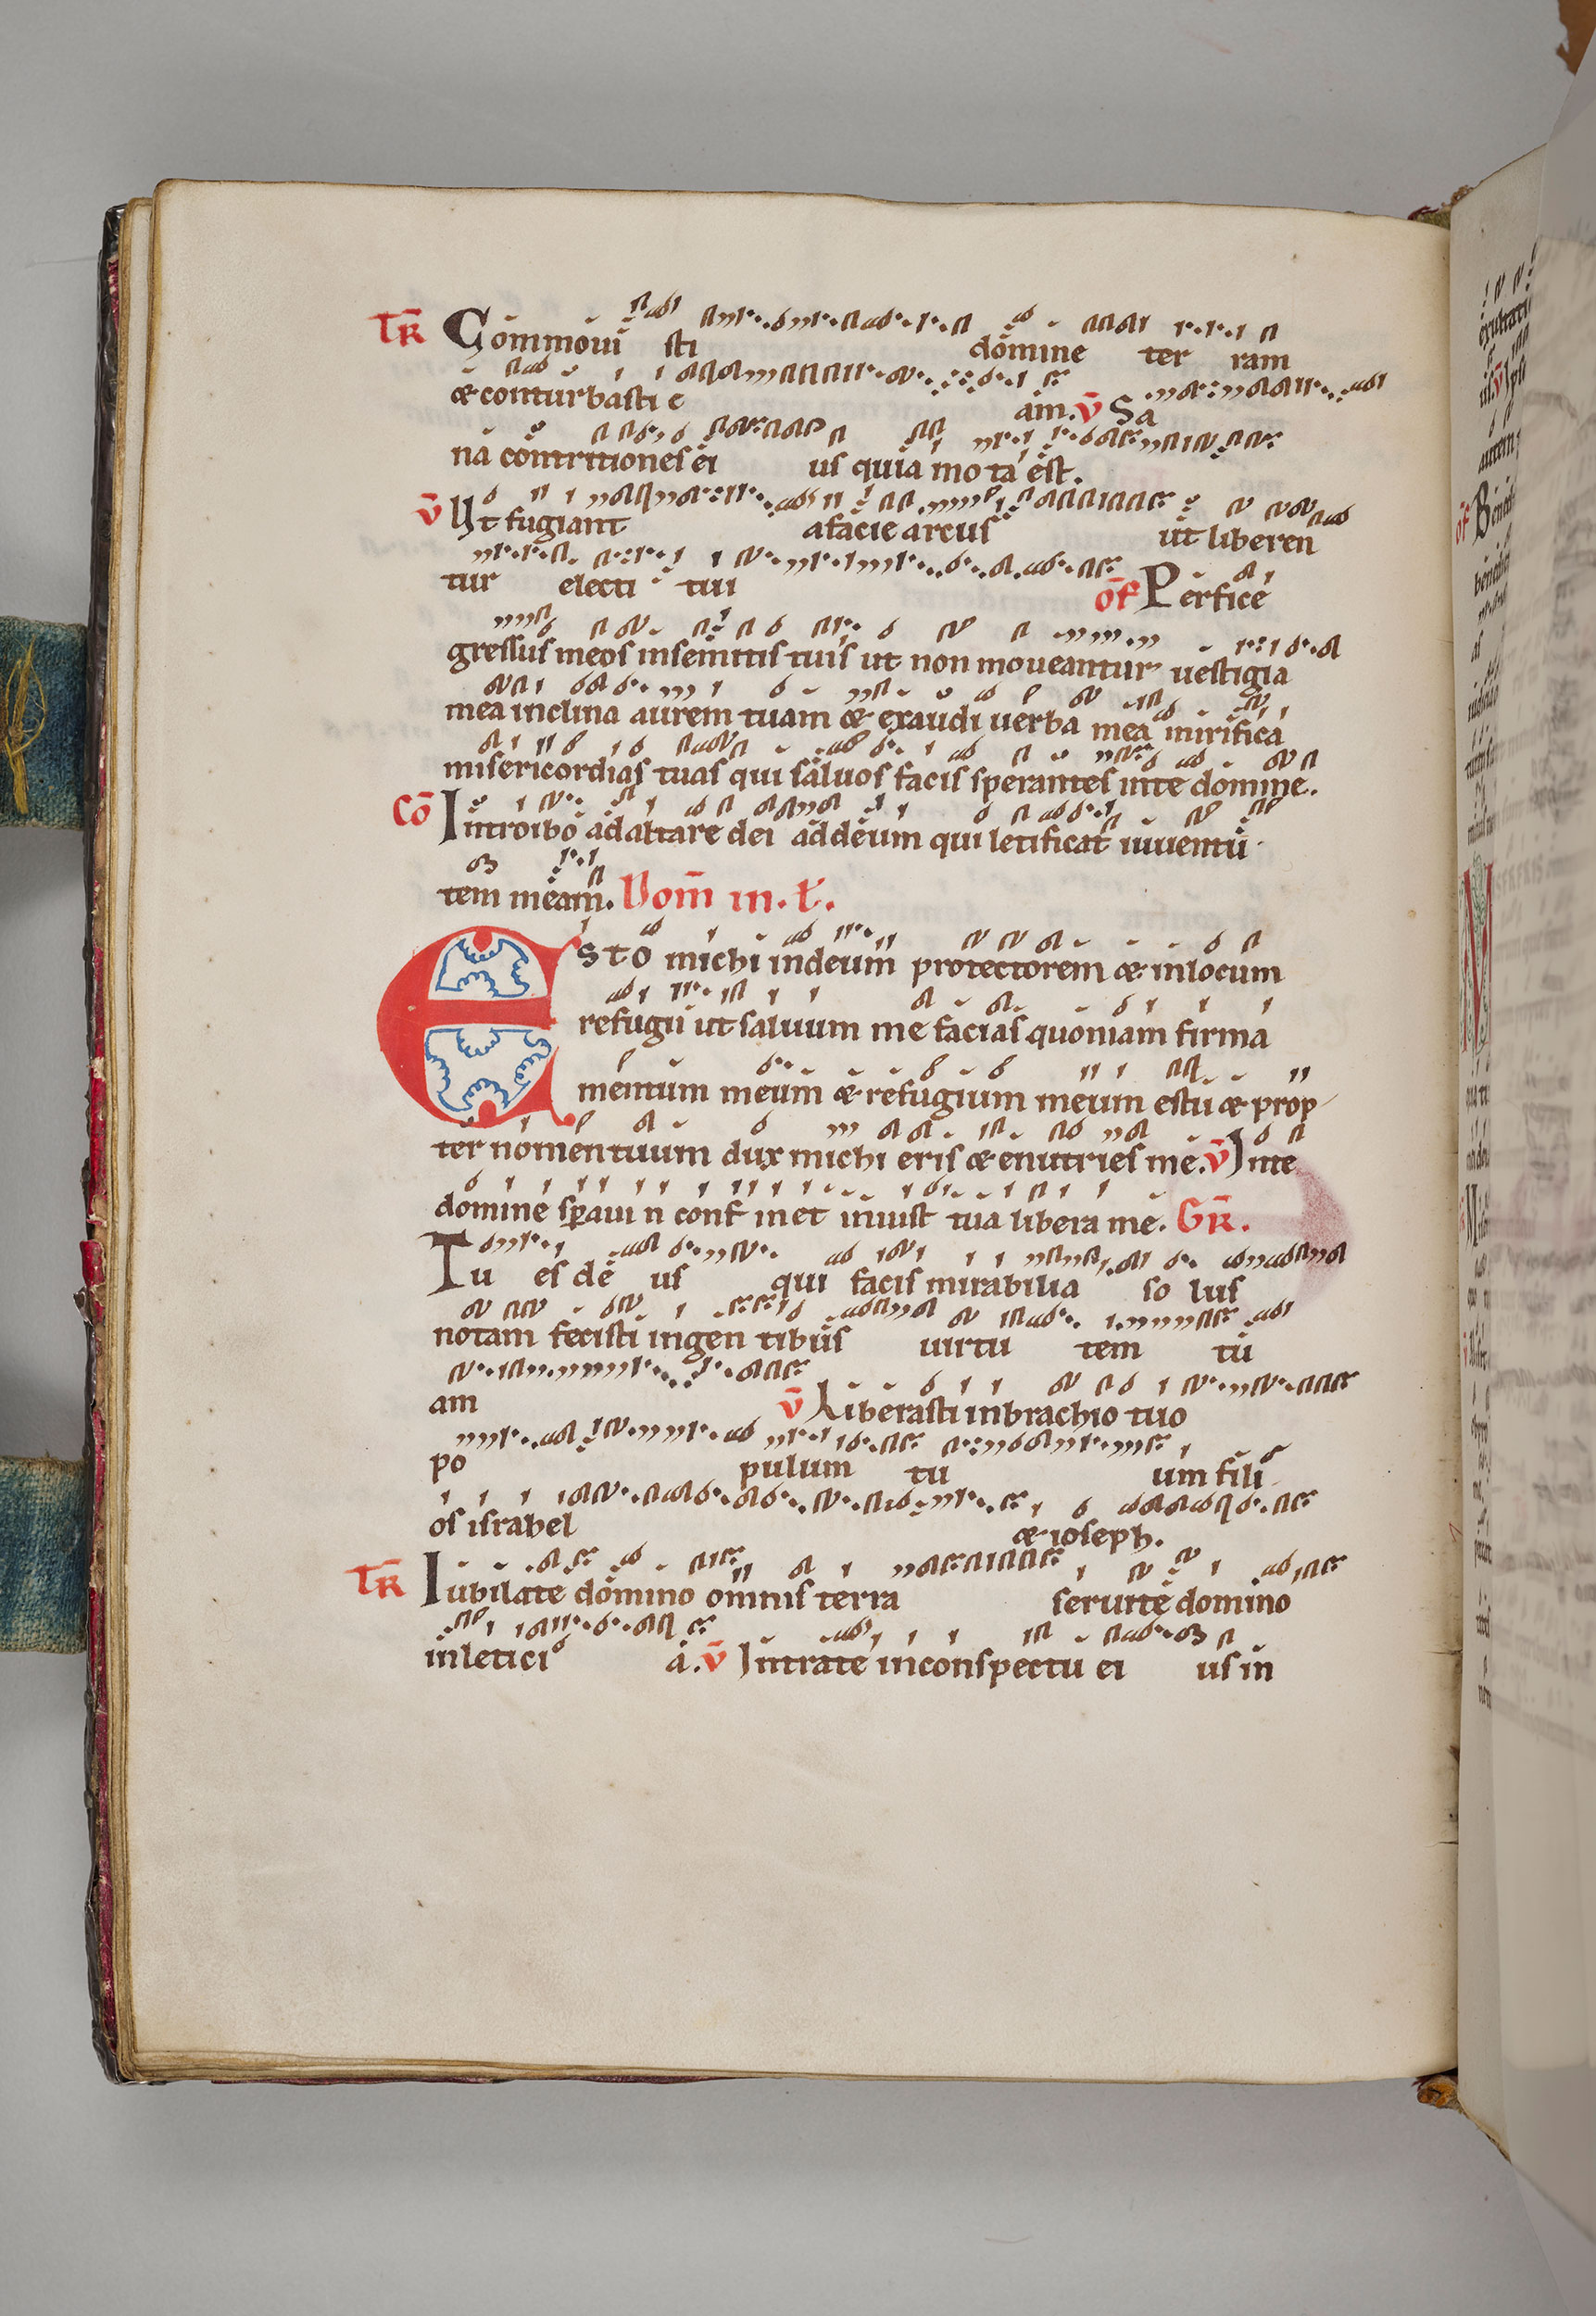 TR Commoui sti domine ter ram
& conturbasti e am. V Sa
na contritiones ei us quia mota est.
V Ut fugiant afacie arcus ut liberen
tur electi tui OF Perfice
gressus meos insemitis tuis ut non moueantur uestigia
mea inclina aurem tuam & exaudi uerba mea mirifica
misericordias tuas qui saluos facis sperantes inte domine.
CO Introibo adaltare dei addeum qui letificat iuuentu
tem meam. Dom in .L.
Esto michi indeum protectorem & inlocum
refugii ut saluum me facias quoniam firma
mentum meum & refugium meum estu & prop
ter nomen tuum dux michi eris & enutries me. V Inte
domine speraui n conf inet iniust tua libera me. GR.
Tu es de us qui facis mirabilia so lus
notam fecisti ingen tibus uirtu tem tu
am V Liberasti inbrachio tuo
po pulum tu um fili
os israhel & ioseph.
TR Iubilate domino omnis terra seruite domino
inletici a. V Intrate inconspectu ei us in